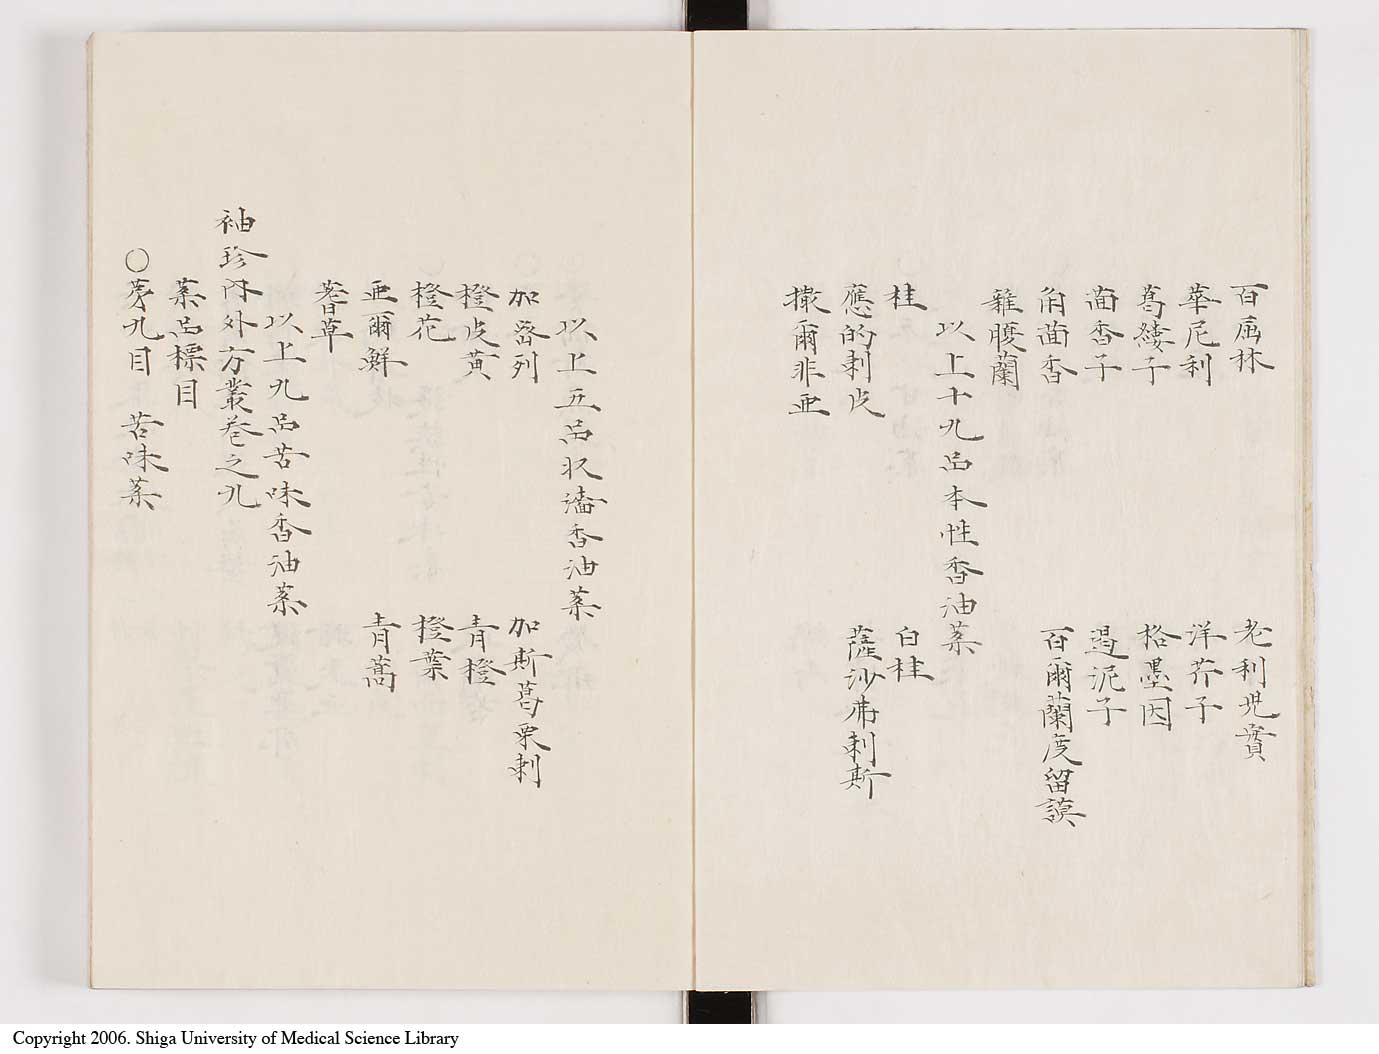 百屈林　老利児實
華尼利　洋芥子
葛縷子　格墨因
茴香子　遏泥子
角茴香　百爾蘭度留謨
雞腹蘭
以上十九品本性香油薬
桂　白桂
應的剌皮　薩沙弗剌斯
撒爾非亜
以上五品収濇香油薬
加密列　加斯葛栗剌
橙皮黄　青橙
橙花　橙葉
亜爾鮮　青蒿
蓍草
以上九品苦味香油薬
袖珍内外方叢巻之九
薬品標目
〇苐九目　苦味薬
Copyright 2006. Shiga University of Medical Science Library